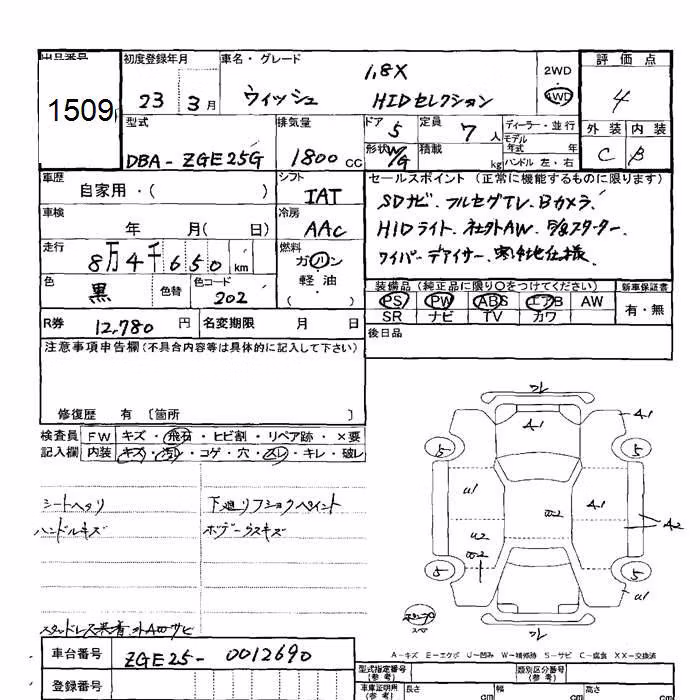 出品番号
1509
初度登録年月
23年 3月
車名・グレード
ウィッシュ
1.8X
HIDセレクション
2WD
4WD
評価点
4
外装 内装
C B
型式
DBA-ZGE25G
排気量
1800cc
ドア 5
定員 7人
形状 W/G
積載 kg
ディーラー・並行
モデル年式 年式
ハンドル 左・右
車歴
自家用・( )
シフト
IAT
車検
年 月( 日)
冷房
AAC
走行
8万4千650km
燃料
ガソリン
軽・油
( )
色
黒
色替
色コード
202
セールスポイント(正常に機能するものに限ります)
SDナビ.フルセグTV.Bカメラ.
HIDライト.社外AW.
ワイパーデアイサー.寒冷地仕様.
装備品(純正品に限り○をつけてください)
PS PW ABS エアB AW
SR ナビ TV カワ
新車保証書
有・無
R券 12,780円
名変期限 月 日
後日品
注意事項申告欄(不具合内容等は具体的に記入して下さい)
修復歴 有〔箇所 〕
検査員記入欄
FW キズ・飛石・ヒビ割・リペア跡・×要
内装 キズ・汚レ・コゲ・穴・スレ・キレ・破レ
シートヘタリ
ハンドルキズ
下廻リフショクペイント
ボデーウスキズ
スタッドレス装着.外AWサビ
フレ
A1
A1
5
5
U1
A1
A2
U2
W2
W2
5
5
U1
スペア
フレ
A-キズ E-エクボ U-凹み W-補修跡 S-サビ C-腐食 XX-交換済
車台番号
ZGE25-0012690
登録番号
型式指定番号(参考)
類別区分番号(参考)
車庫証明用(参考)
長さ cm
幅 cm
高さ cm